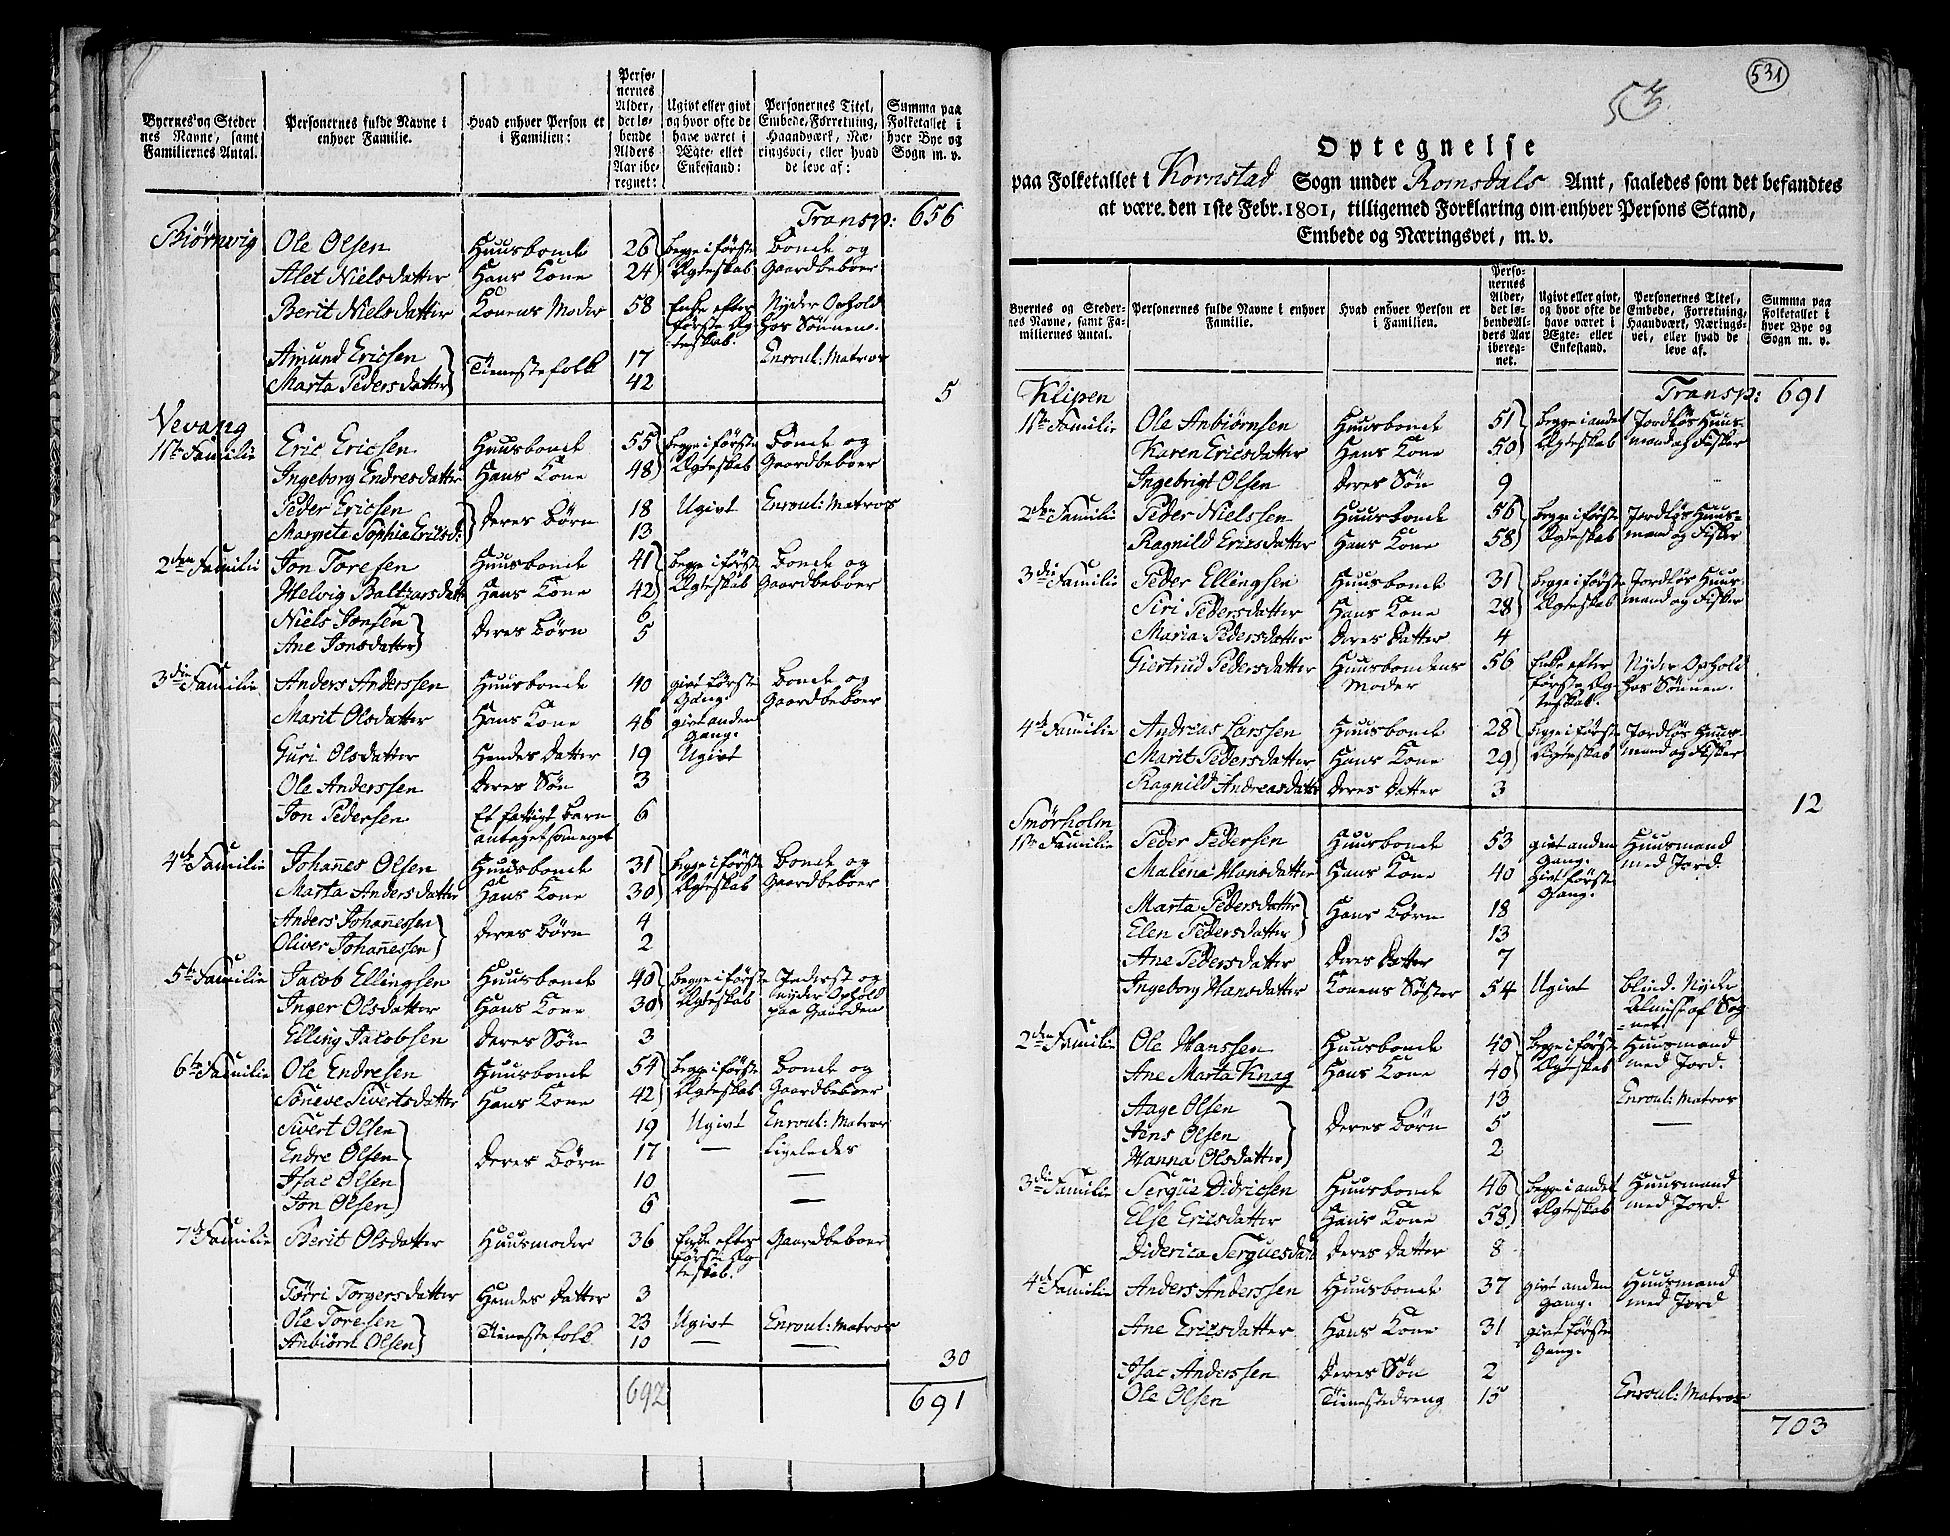 Byernes og Steder
nes Navne, samt
Familiernes Antal.
Personernes fulde Navne i
enhver Familie.
Hvad enhver Person er
i Familien:
Perso-
nernes
Alder,
det lø-
bende
Alders
Aar ibe-
regnet:
Ugivt eller givt
og hvor ofte de
have været i
Ægte- eller
Enkestand:
Personernes Titel,
Embede, Forretning,
Haandværk, Næ-
ringsvei, eller hvad
de leve af:
Summa paa
Folketallet i
hver Bye og
Sogn m. v.
Transp: 656
Biørnvig Ole Olsen Huusbonde 26 begge i første Bonde og
Alet Nielsdatter Hans Kone 24 Ægteskab Gaardbeboer
Berit Nielsdatter Konens Moder 58 Enke efter Nyder Ophold
første Æg hos Sønnen.
teskab
Amund Ericsen Tienestefolk 17 Enroul: Matros
Marta Pedersdatter 42
5
Vevang
1ste Familie Eric Ericsen Huusbonde 55 begge i første Bonde og
Ingeborg Endresdatter Hans Kone 48 Ægteskab Gaardbeboer
Peder Ericsen Deres Børn 18 Ugivt Enroul: Matros
Margrete Sophia Ericsd: 13
2den Familie Jon Toresen Huusbonde 41 begge i første Bonde og
Helvig Baltzarsdatt Hans Kone 42 Ægteskab Gaardbeboer
Niels Jonsen Deres Børn 6
Ane Jonsdatter 5
3die Familie Anders Anderssen Huusbonde 40 givt første Bonde og
Gang. Gaardbeboer
Marit Olsdatter Hans Kone 46 givt anden
Gang.
Guri Olsdatter Hendes Datter 19 Ugivt
Ole Anderssen Deres Søn 3
Jon Pedersen Et fattigt Barn 6
antaget som eget
4de Familie Johañes Olsen Huusbonde 31 begge i første Bonde og
Marta Andersdatter Hans Kone 30 Ægteskab Gaardbeboer
Anders Johañessen Deres Børn 4
Oliver Johañessen 2
5te Familie Jacob Ellingsen Huusbonde 40 begge i første Inderst og
Inger Olsdatter Hans Kone 30 Ægteskab nyder Ophold
paa Gaarden
Elling Jacobsen Deres Søn 3
6te Familie Ole Endresen Huusbonde 54 begge i første Bonde og
Søneve Sivertsdatter Hans Kone 42 Ægteskab Gaardbeboer
Sivert Olsen 19 Ugivt Enroul: Matros
Endre Olsen Deres Børn 17 — Ligeledes
Isac Olsen 10 —
Jon Olsen 6 —
7de Familie Berit Olsdatter Huusmoder 36 Enke efter Gaardbeboer
første Æg
teskab.
Tørri Torgersdatter Hendes Datter 3
Ole Toresen Tienestefolk 23 Ugivt Enroul: Matros
Anbiørn Olsen 10 — —
30
692 691
531
Optegnelse
paa Folketallet i Kornstad Sogn under Romsdals Amt, saaledes som det befandtes
at være den 1ste Febr. 1801, tilligemed Forklaring om enhver Persons Stand,
Embede og Næringsvei, m. v.
Byernes og Steder-
nes Navne, samt Fa-
miliernes Antal.
Personernes fulde Navne i enhver
Familie.
Hvad enhver Person er
i Familien.
Perso-
nernes
Alder,
det lø-
bende Al-
ders Aar
ibereg-
net.
Ugivt eller givt,
og hvor ofte de
have været i
Ægte- eller
Enkestand.
Personernes Titel,
Embede, Forretning,
Haandværk, Nærings-
vei, eller hvad de
leve af.
Summa paa
Folketallet i
hver Bye og
Sogn m. v.
Klipen Transp: 691
1ste Familie Ole Anbiørnsen Huusbonde 51 begge i andet Jordløs Huus-
Karen Ericsdatter Hans Kone 50 Ægteskab mand og Fisker
Ingebrigt Olsen Deres Søn 9
2den Familie Peder Nielssen Huusbonde 56 begge i første Jordløs Huus-
Ragnild Ericsdatter Hans Kone 58 Ægteskab mand og Fisker
3die Familie Peder Ellingsen Huusbonde 31 begge i første Jordløs Huus-
Siri Pedersdatter Hans Kone 28 Ægteskab mand og Fisker
Maria Pedersdatter Deres Datter 4
Giertrud Pedersdatter Huusbondens 56 Enke efter Nyder Ophold
Moder første Æg hos Sønnen.
teskab.
4de Familie Andreas Larssen Huusbonde 28 begge i første Jordløs Huus-
Marit Pedersdatter Hans Kone 29 Ægteskab mand og Fisker
Ragnild Andreasdatt Deres Datter 3
12
Smørholm
1ste Familie Peder Pedersen Huusbonde 53 givt anden Huusmand
Gang. med Jord.
Malena Hansdatter Hans Kone 40 givt første
Gang.
Marta Pedersdatter Hans Børn 18
Elen Pedersdatter 13
Ane Pedersdatter Deres Datter 7
Ingeborg Hansdatter Konens Søster 54 Ugivt blind. Nyder
Almisse af Sog
net
2den Familie Ole Hanssen Huusbonde 40 begge i første Huusmand
Ane Marta Knag Hans Kone 40 Ægteskab med Jord.
Aage Olsen 13 Enroul: Matros
Jens Olsen Deres Børn 5 —
Hanna Olsdatter 2
3die Familie Sergue Didricsen Huusbonde 46 begge i andet Huusmand
Else Ericsdatter Hans Kone 53 Ægteskab med Jord.
Diderica Serguesdatt Deres Datter 8
4de Familie Anders Anderssen Huusbonde 37 givt anden Huusmand
Gang. med Jord
Ane Ericsdatter Hans Kone 31 givt første
Gang.
Isac Anderssen Deres Søn 2
Ole Olsen Tienestedreng 15 Enroul: Matros
703